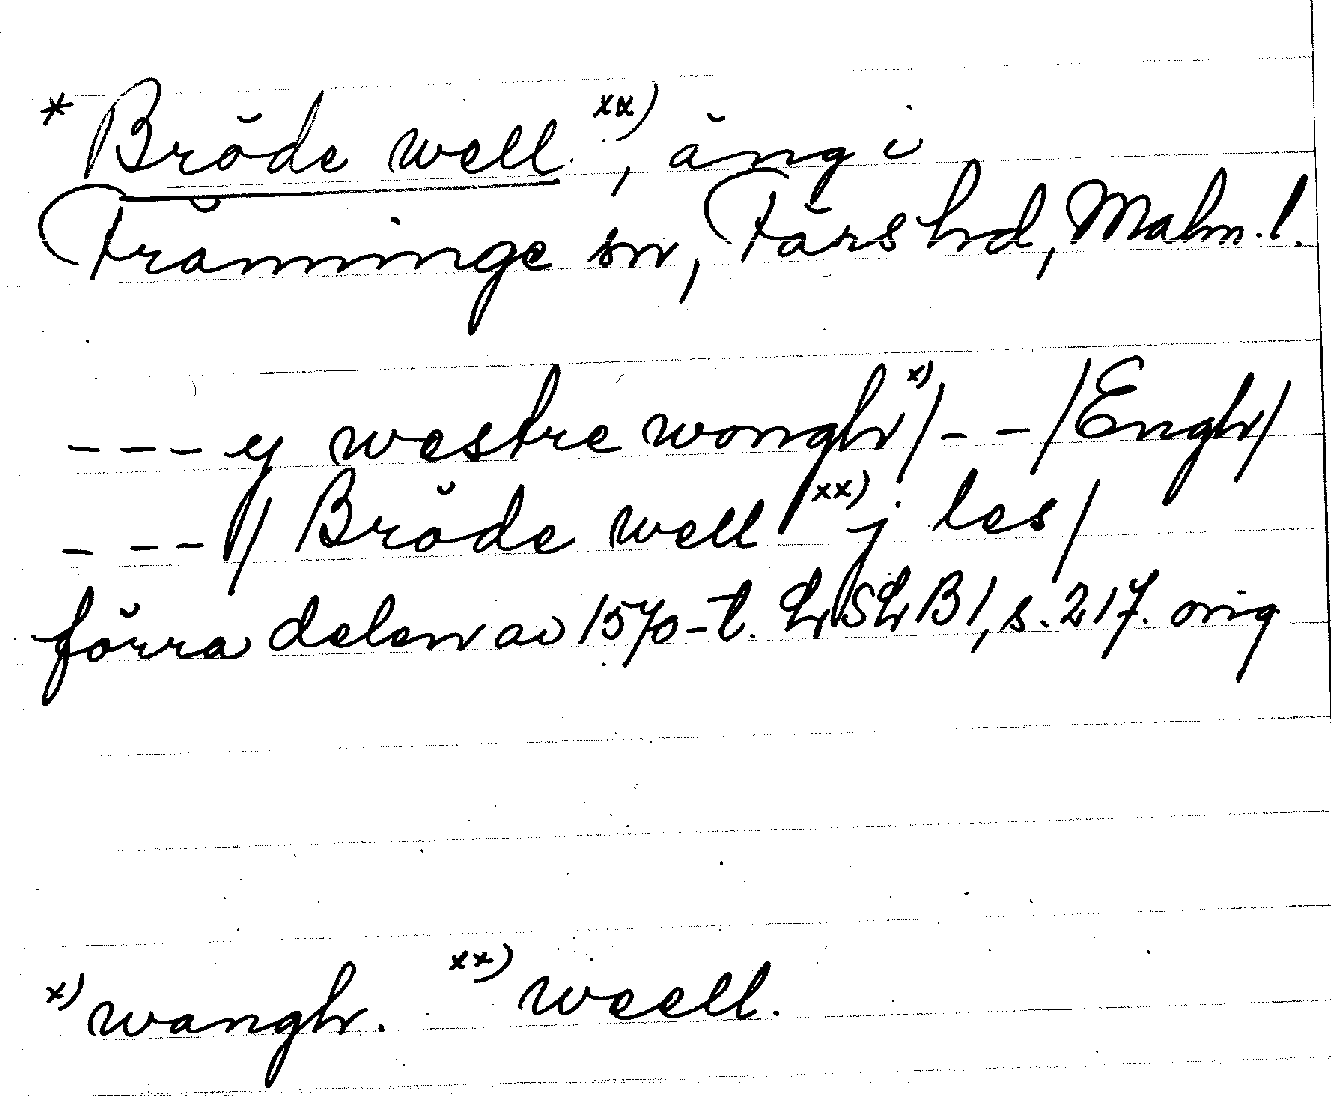 * Bröde well xx), äng i
Fränninge sn, Färs hd, Malm. l.
--- y westre wongh x) / -- / Engh /
--- / Bröde well xx) j les /
förra delen av 1570-t. LSLB 1, s. 217. orig
x) wangh. xx) weell.